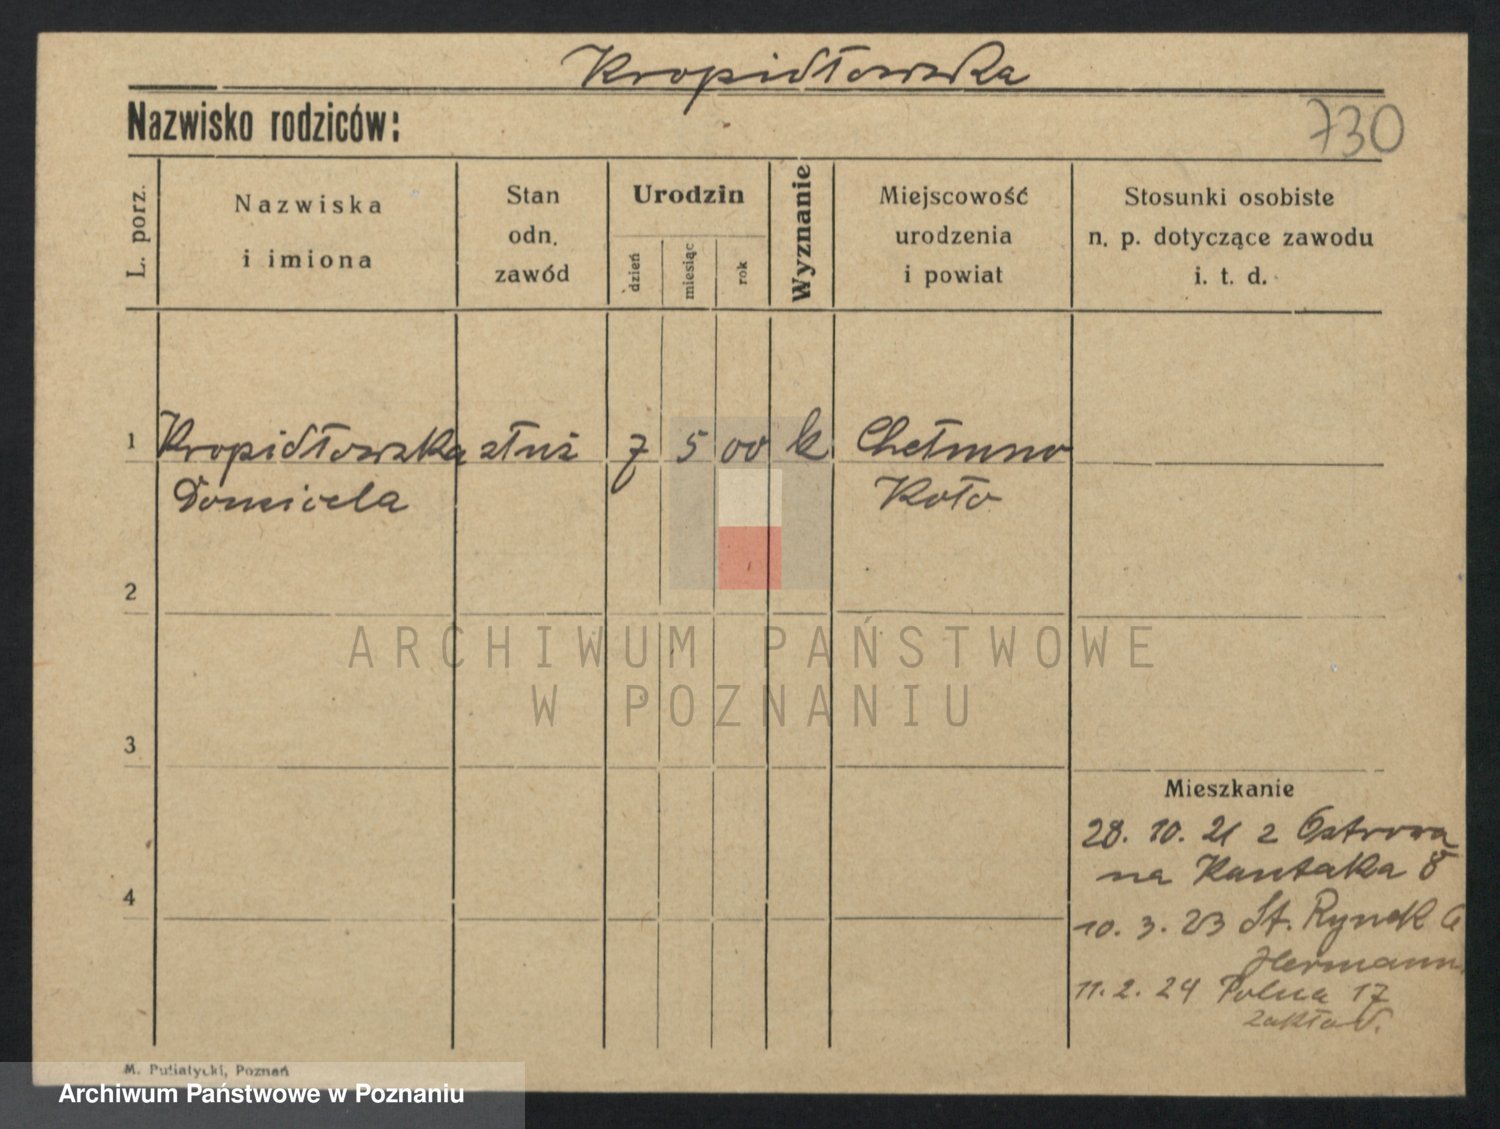 Kropidłowska
Nazwisko rodziców:
730
L. porz.
Nazwiska
i imiona
Stan
odn.
zawód
Urodzin
dzień
miesiąc
rok
Wyznanie
Miejscowość
urodzenia
i powiat
Stosunki osobiste
n. p. dotyczące zawodu
i. t. d.
1 Kropidłowska służ 7 5 00 k Chełmno
Domicela Koło
2
ARCHIWUM PAŃSTWOWE
W POZNANIU
3
Mieszkanie
28. 10. 21 z Ostrowa
na Kantaka 8
4
10. 3. 23 St. Rynek
Hermann
11. 2. 24 Polna 17
zakład.
M. Putiatycki, Poznań
Archiwum Państwowe w Poznaniu